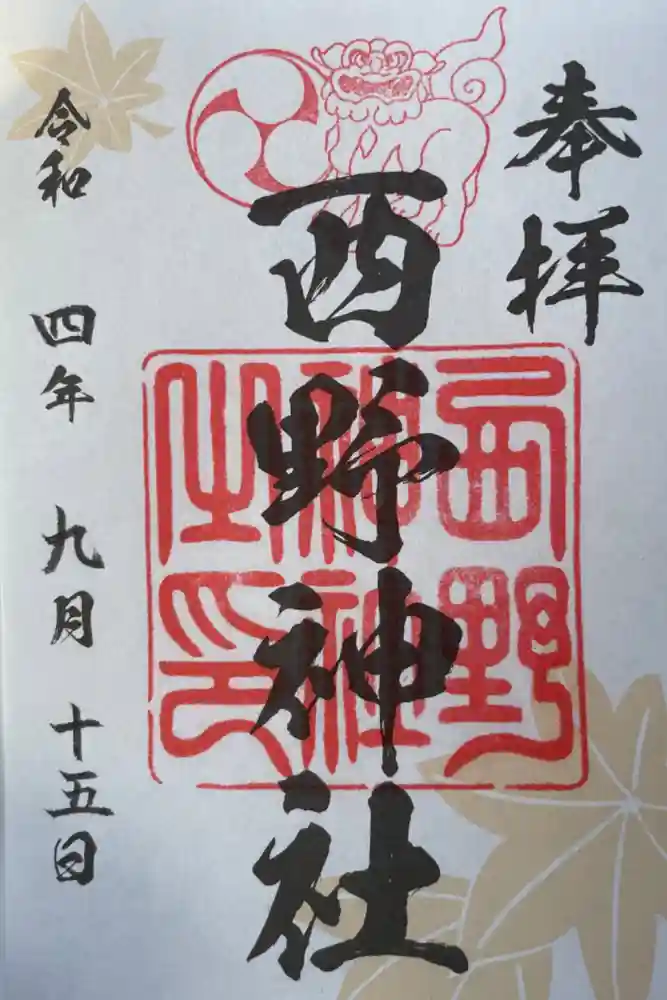 奉拝
西野神社
西野神社之印
令和 四年 九月 十五日